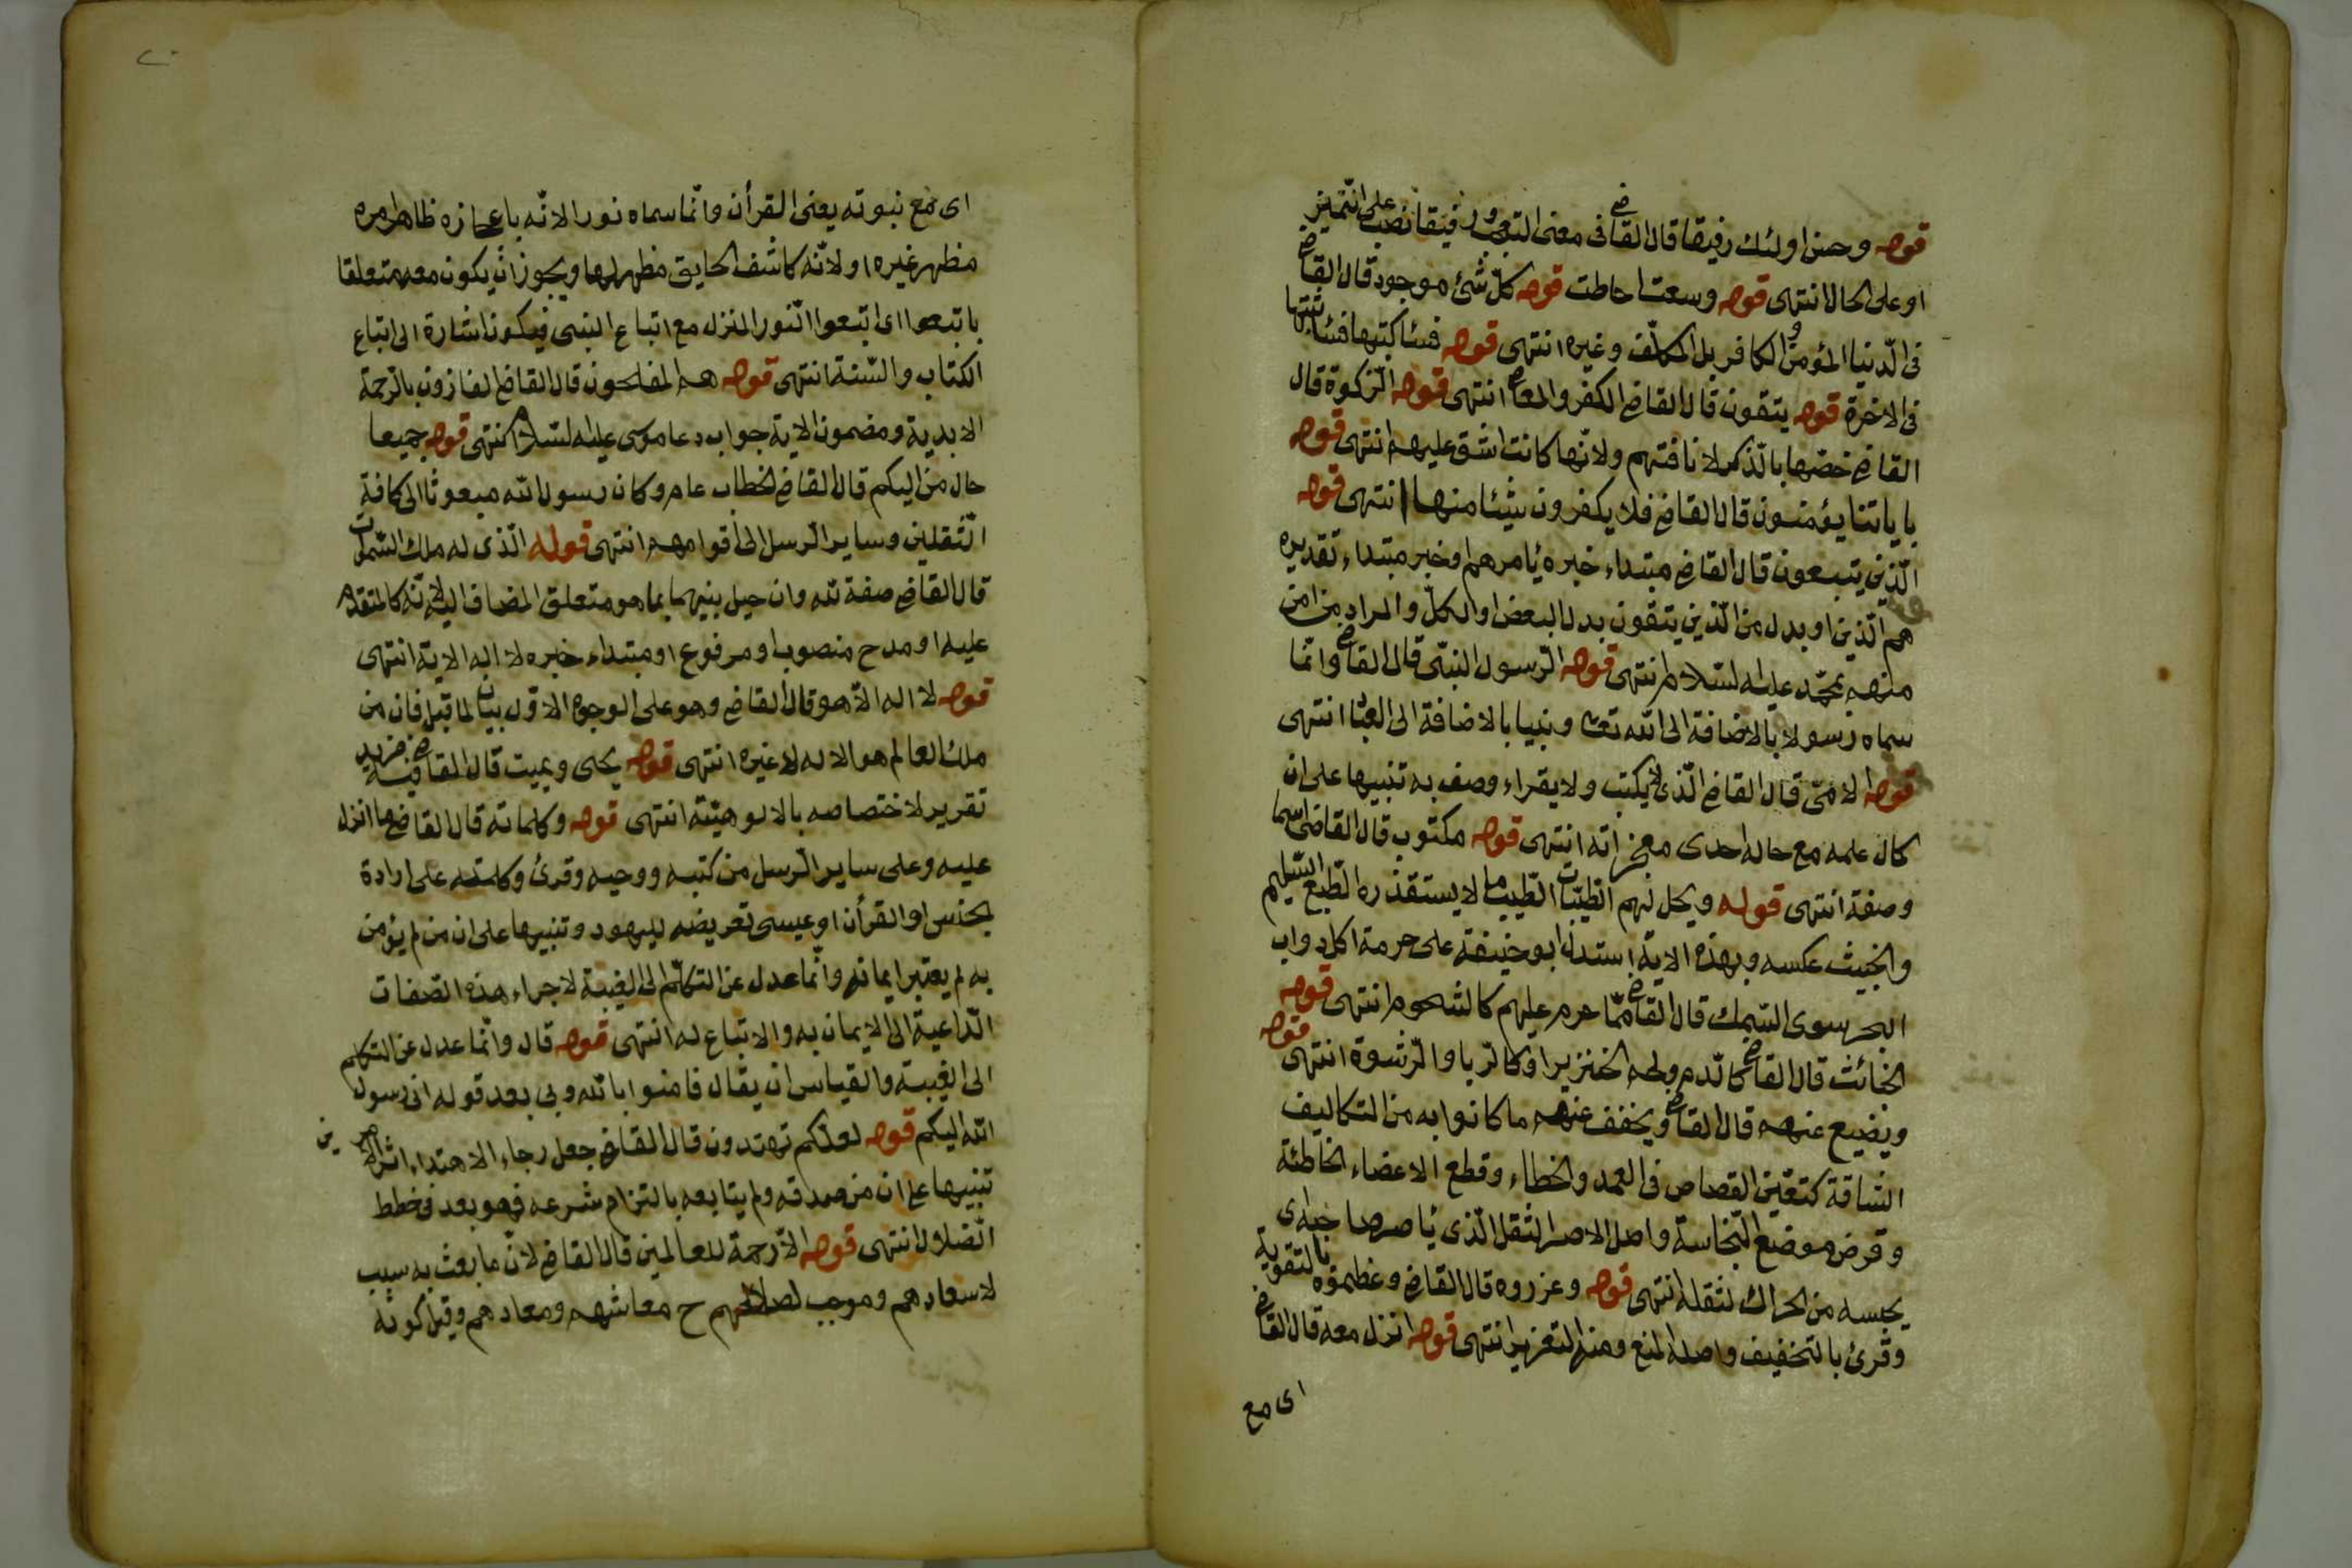 قوله وحسن اولئك رفيقا قال القاض فى معنى التعجب ورفيقا نصب على التميز
او على الحال انتهى قوله وسعت احاطت قوله كل شئ موجود قال القاض
فى الدنيا المؤمن والكافر بل المكلف وغيره انتهى قوله فسأكتبها فسأثبتها
فى الاخرة قوله يتقون قال القاضى الكفر والمعاص انتهى قوله الزكوة قال
القاضى خصها بالذكر لانافتهم ولانها كانت اشق عليهم انتهى قوله
باياتنا يؤمنون قال القاضى فلا يكفرون بشئ منها انتهى قوله
الذين يتبعون قال القاضى مبتداء خبره يأمرهم او خبر مبتداء تقديره
هم الذين او بدل من الذين يتقون بدل البعض او الكل والمراد من امن
منهم بمحمد عليه السلام انتهى قوله الرسول النبى قال القاض وانما
سماه رسولا بالاضافة الى الله تعا ونبيا بالاضافة الى العباد انتهى
قوله الامى قال القاضى الذى لا يكتب ولا يقراء وصف به تنبيها على ان
كمال علمه مع حاله احدى معجزاته انتهى قوله مكتوب قال القاضى اسما
وصفة انتهى قوله ويحل لهم الطيبات الطيب ما لا يستقذره الطبع السليم
والخبيث عكسه وبهذه الاية استدل ابو حنيفة على حرمة اكل دواب
البحر سوى السمك قال القاض مما حرم عليهم كالشحوم انتهى قوله
الخبائث قال القاض كالدم ولحم الخنزير او كالربا والرشوة انتهى قوله
ويضع عنهم قال القاض ويخفف عنهم ما كانوا به من التكاليف
الشاقة كتعيين القصاص فى العمد والخطاء وقطع الاعضاء الخاطئة
وقرض موضع النجاسة واصل الاصر الثقل الذى يأصر صاحبه اى
يحبسه من الحراك لثقله انتهى قوله وعزروه قال القاضى وعظموه بالتقوية
وقرئ بالتخفيف واصله المنع ومنه التعزير انتهى قوله انزل معه قال القاض
اى مع
اى مع نبوته يعنى القرأن وانما سماه نورا لانه باعجازه ظاهر امره
مظهر غيره او لانه كاشف الحقايق مظهر لها ويجوز ان يكون معه متعلقا
باتبعوا اى اتبعوا النور المنزل مع اتباع النبى فيكون اشارة الى اتباع
الكتاب والسنة انتهى قوله هم المفلحون قال القاضى الفازون بالرحمة
الابدية ومضمون الاية جواب دعا موسى عليه السلام انتهى قوله جميعا
حال من اليكم قال القاضى الخطاب عام وكان رسول الله مبعوثا الى كافة
الثقلين وساير الرسل الى اقوامهم انتهى قوله الذى له ملك السموات
قال القاضى صفة لله وان حيل بينهما بما هو متعلق المضاف اليه لانه كالمتقدم
عليه او مدح منصوب او مرفوع او مبتداء خبره لا اله الاية انتهى
قوله لا اله الا هو قال القاضى وهو على الوجوه الاول بيان لما قبله فان من
ملك العالم هو الاله لا غيره انتهى قوله يحى ويميت قال القاضى فيه مزيد
تقرير لاختصاصه بالالوهية انتهى قوله وكلماته قال القاضى ما انزل
عليه وعلى ساير الرسل من كتبه ووحيه وقرئ وكلمته على ارادة
الجنس او القرأن او عيسى تعريضه لليهود وتنبيها على ان من لم يؤمن
به لم يعتبر ايمانه وانما عدل عن التكلم الى الغيبة لاجراء هذه الصفات
الداعية الى الايمان به والاتباع له انتهى قوله قال وانما عدل عن التكلم
الى الغيبة والقياس ان يقال فامنوا بالله وبى بعد قوله انى رسول
الله اليكم قوله لعلكم تهتدون قال القاضى جعل رجاء الاهتداء اثر الامرين
تنبيها على ان من صدقه ولم يتابعه بالتزام شرعه فهو بعد فى خطط
الضلال انتهى قوله الا رحمة للعالمين قال القاضى لان ما بعث به سبب
لاسعادهم وموجب لصلاحهم ح معاشهم ومعادهم وقيل كونه